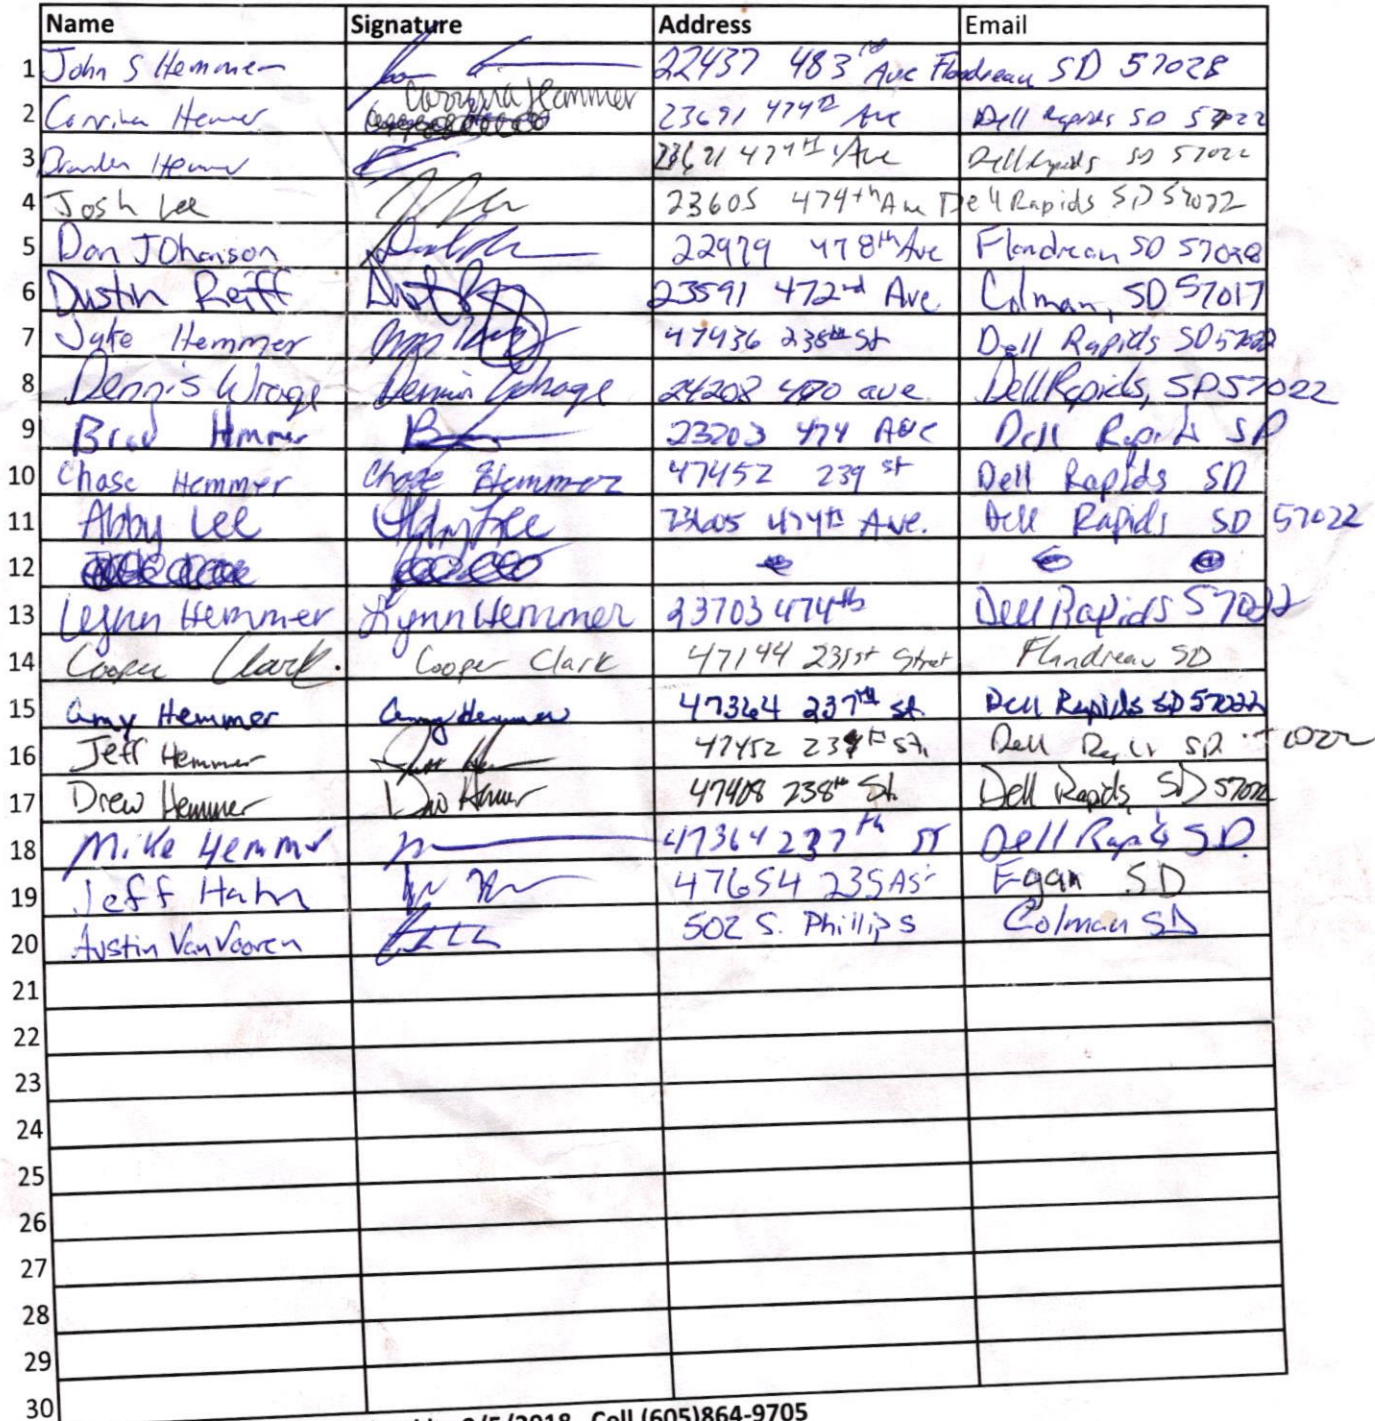 Name Signature Address Email
1 John S Hemmer 22437 483rd Ave Flandreau SD 57028
2 Corrina Hemmer Corrina Hemmer 23691 474th Ave Dell Rapids SD 57022
3 Hemmer 23691 474th Ave Dell Rapids SD 57022
4 Josh Lee 23605 474th Ave Dell Rapids SD 57022
5 Don JOhanson 22979 478th Ave Flandreau SD 57028
6 Dustin Reiff 23591 472nd Ave. Colman, SD 57017
7 Jyke Hemmer 47436 238th St Dell Rapids SD 57022
8 Dennis Wrage Dennis Wrage 24208 470 ave Dell Rapids, SD 57022
9 Brad Hmmer 23703 474 Ave Dell Rapids SD
10 Chase Hemmer Chase Hemmer 47452 239 st Dell Rapids SD
11 Abby Lee Abby Lee 23605 474th Ave. Dell Rapids SD 57022
12
13 Lynn Hemmer Lynn Hemmer 23703 474th Dell Rapids 57022
14 Cooper Clark. Cooper Clark 47144 231st Street Flandreau SD
15 Amy Hemmer Amy Hemmer 47364 237th st. Dell Rapids SD 57022
16 Jeff Hemmer 47452 239th St. Dell SD
17 Drew Hemmer Drew Hemmer 47408 238th St. Dell Rapids, SD 57022
18 Mike Hemmer 47364 237th ST Dell Rapids SD.
19 Jeff Hahn 47654 Egan SD
20 Austin VanVooren 502 S. Phillips Colman SD
21
22
23
24
25
26
27
28
29
30
/5/2018 Cell (605)864-9705